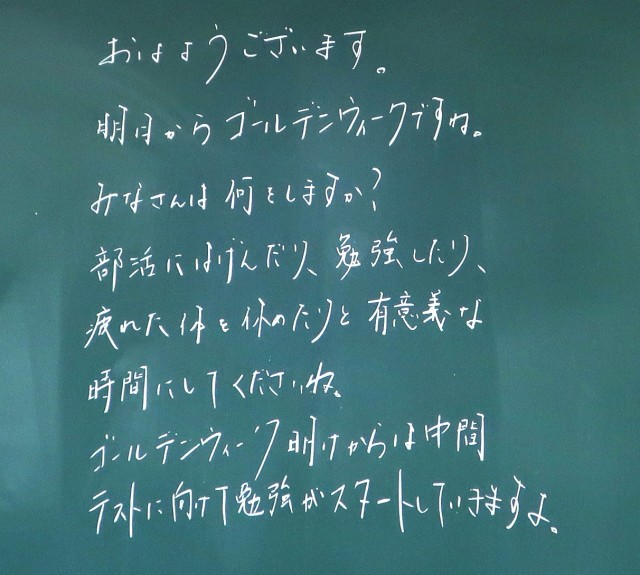 おはようございます。
明日からゴールデンウィークですね。
みなさんは何をしますか?
部活にはげんだり、勉強したり、
疲れた体を休めたりと有意義な
時間にしてくださいね。
ゴールデンウィーク明けからは中間
テストに向けて勉強がスタートしていきますよ。